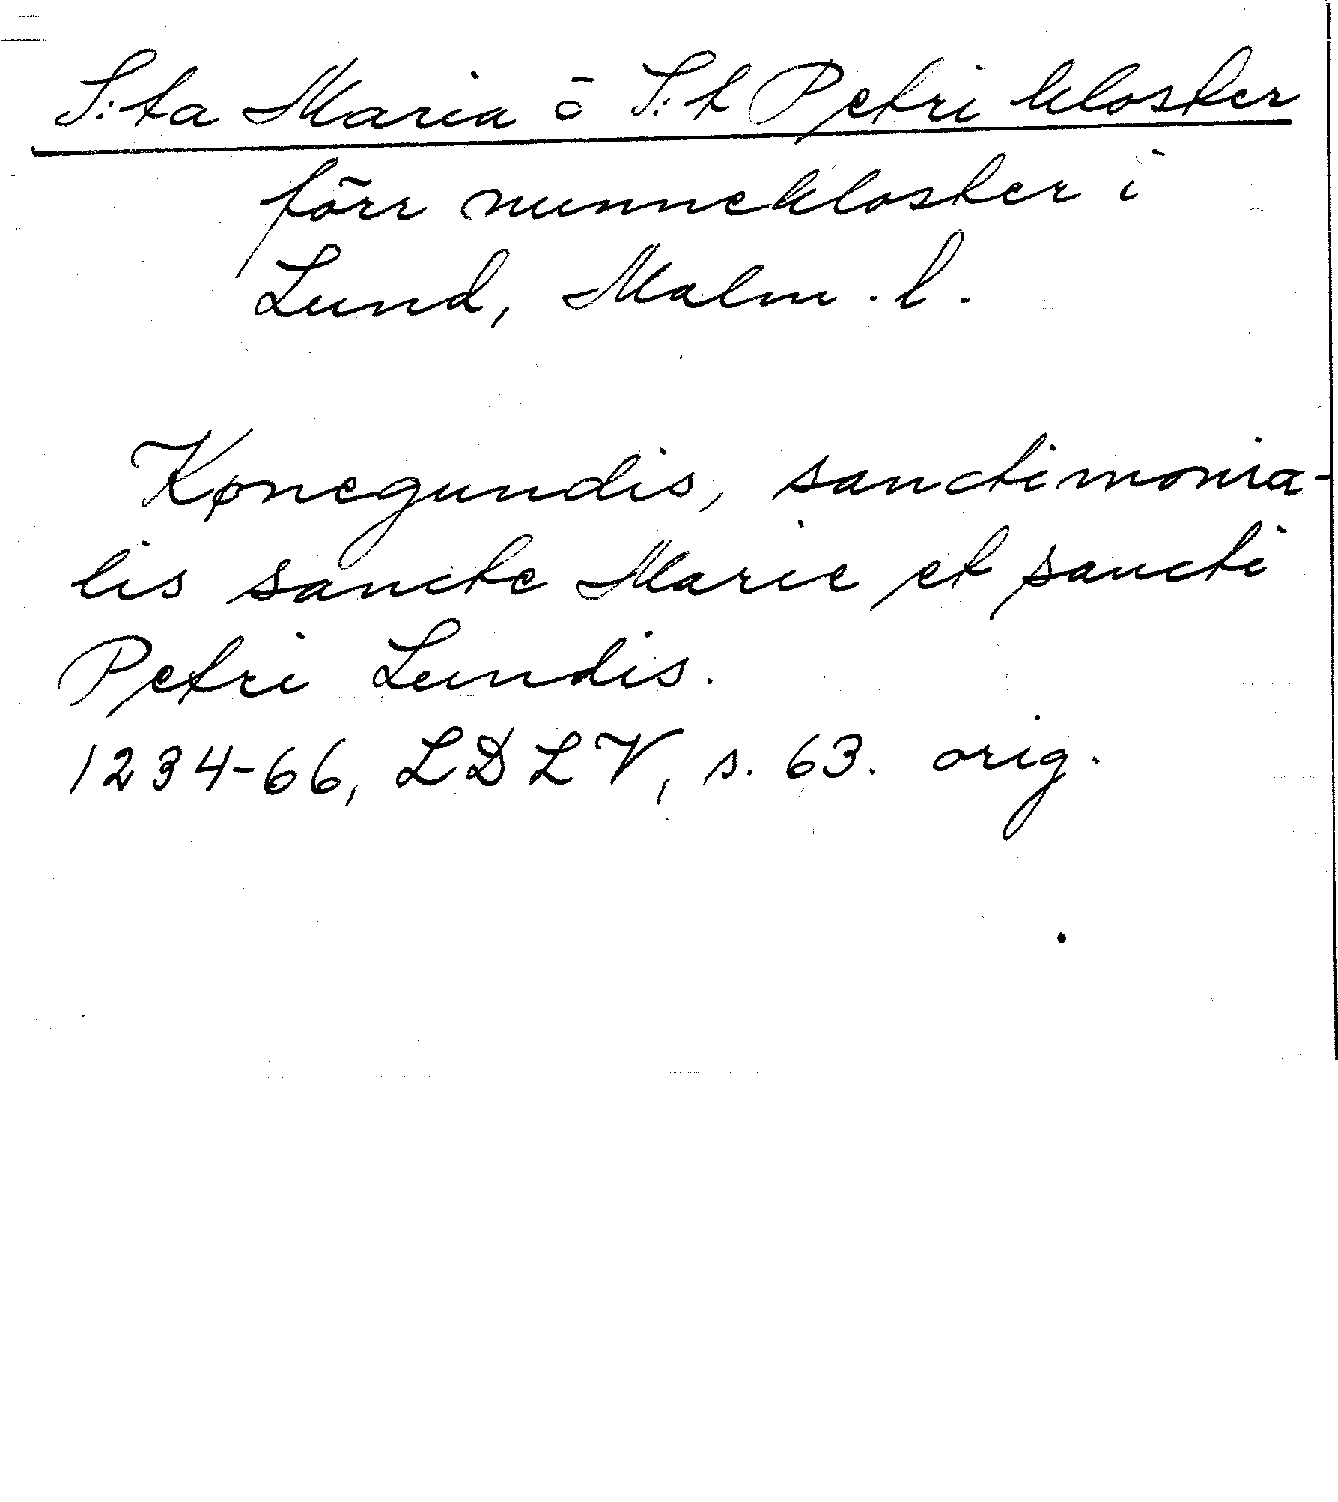 S:ta Maria o S:t Petri kloster
förr nunnekloster i
Lund, Malm. l.
Kønegundis, sanctimonia-
lis sancte Marie et sancti
Petri Lundis.
1234-66, LDLV, s. 63. orig.